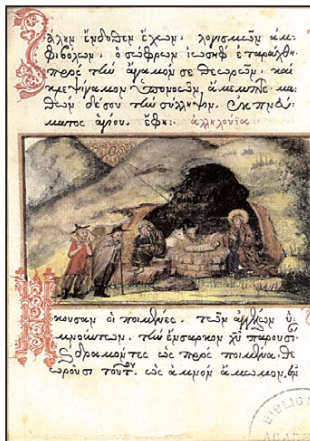 Ζάλην ἔνδοθεν ἔχων· λογισμῶν ἀμ-
φιβόλων· ὁ σώφρων ἰωσὴφ ἐταράχθη·
πρὸς τὴν ἄγαμόν σε θεωρῶν· καὶ
κλεψίγαμον ὑπονοῶν, ἄμεμπτε· μα-
θὼν δέ σου τὴν σύλληψιν· ἐκ πνεύ-
ματος ἁγίου. ἔφη: ἀλληλούϊα
Ἤκουσαν οἱ ποιμένες· τῶν ἀγγέλων ὑ-
μνούντων· τὴν ἔνσαρκον χυ παρουσί
δραμόντες ὡς πρὸς ποιμένα· θε
ωροῦσι τοῦτ. ὡς ἀμνὸν ἄμωμον, ἐν
BIBLIOT
ACADE